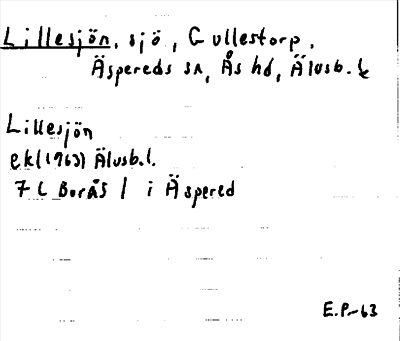 Lillesjön, sjö, Gullestorp,
Äspereds sn, Ås hd, Älvsb. l.
Lillesjön
ek (1963) Älvsb.l.
7 C Borås 1 i Äspered
E.P.-63